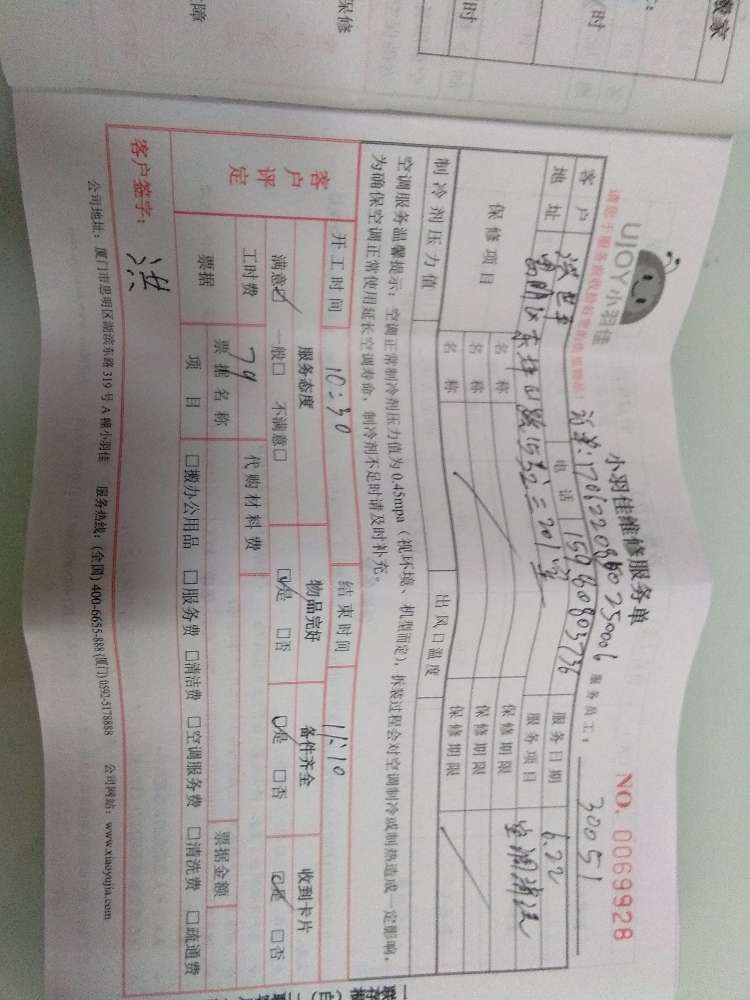 搬家
时
时
保修
障
UJOY小羽佳
小羽佳维修服务单
NO. 0069928
服务员工: 30051
客户
电话 15980803736
服务日期 6.22
地址
服务项目 空调清洗
保修项目
名称
保修期限
名称
保修期限
名称
保修期限
制冷剂压力值
出风口温度
空调服务温馨提示:空调正常制冷剂压力值为0.45mpa(视环境、机型而定),拆装过程会对空调制冷或制热造成一定影响,
为确保空调正常使用延长空调寿命,制冷剂不足时请及时补充。
客户评定
开工时间 10:30
结束时间 11:10
服务态度
物品完好
备件齐全
收到卡片
满意☑ 一般□ 不满意□
☑是 □否
☑是 □否
☑是 □否
工时费 79
代购材料费
票据
票据名称
票据金额
项目
□搬办公用品 □服务费 □清洁费 □空调服务费 □清洗费 □疏通费
客户签字: 洪
公司地址:厦门市思明区湖滨东路319号A幢小羽佳 服务热线:(全国)400-6655-888(厦门)0592-5178888 公司网站:www.xiaoyujia.com